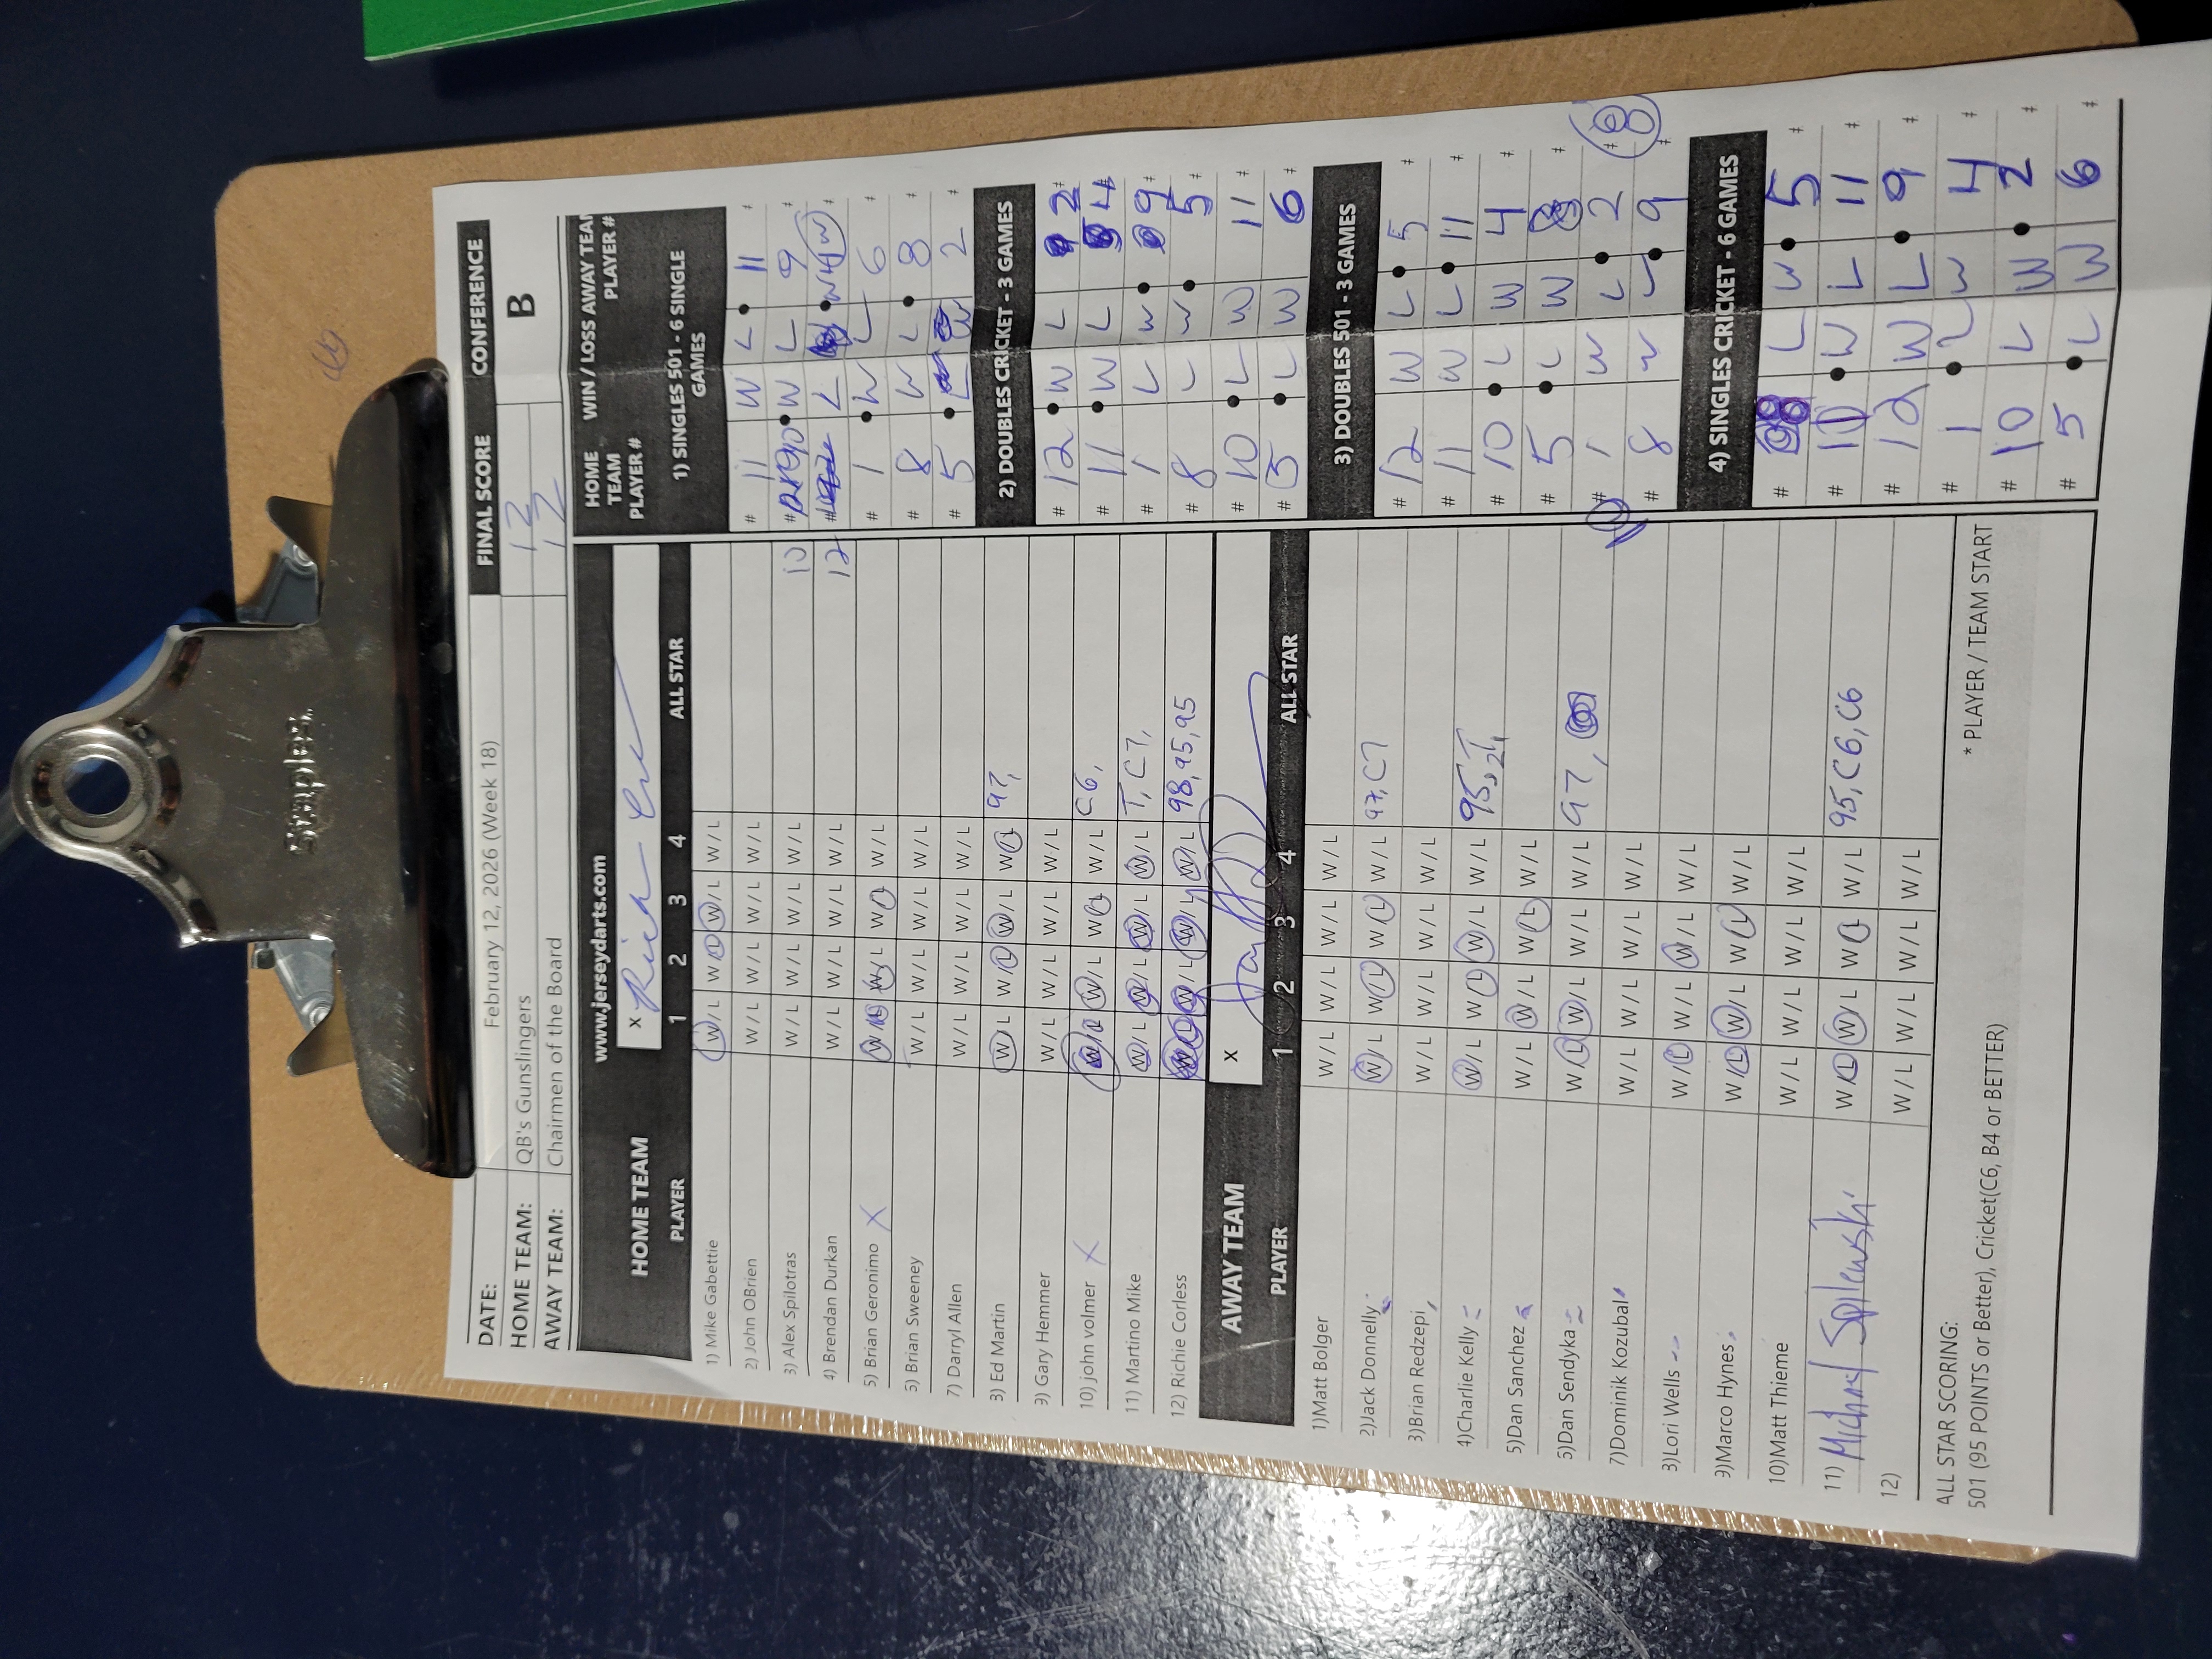 Staples
DATE: February 12, 2026 (Week 18)
HOME TEAM: QB's Gunslingers
AWAY TEAM: Chairmen of the Board
FINAL SCORE
12
12
CONFERENCE
B
www.jerseydarts.com
HOME TEAM
X
PLAYER 1 2 3 4 ALL STAR
1) Mike Gabettie W / L W / L W / L W / L
2) John OBrien W / L W / L W / L W / L
3) Alex Spilotras W / L W / L W / L W / L 10
4) Brendan Durkan W / L W / L W / L W / L 12
5) Brian Geronimo X W / L W / L W / L W / L
5) Brian Sweeney W / L W / L W / L W / L
7) Darryl Allen W / L W / L W / L W / L
3) Ed Martin W / L W / L W / L W / L 97,
9) Gary Hemmer W / L W / L W / L W / L
10) John volmer X W / L W / L W / L W / L C6,
11) Martino Mike W / L W / L W / L W / L T, C7,
12) Richie Corless W / L W / L W / L W / L 98, 95, 95
AWAY TEAM
X
PLAYER 1 2 3 4 ALL STAR
1)Matt Bolger W / L W / L W / L W / L
2)Jack Donnelly W / L W / L W / L W / L 97, C7
3)Brian Redzepi W / L W / L W / L W / L
4)Charlie Kelly W / L W / L W / L W / L 95,
5)Dan Sanchez W / L W / L W / L W / L
5)Dan Sendyka W / L W / L W / L W / L 97,
7)Dominik Kozubal W / L W / L W / L W / L
3)Lori Wells W / L W / L W / L W / L
9)Marco Hynes W / L W / L W / L W / L
10)Matt Thieme W / L W / L W / L W / L
11) Michael W / L W / L W / L W / L 95, C6, C6
12) W / L W / L W / L W / L
ALL STAR SCORING:
501 (95 POINTS or Better), Cricket(C6, B4 or BETTER)
* PLAYER / TEAM START
HOME TEAM PLAYER #
WIN / LOSS
AWAY TEAM PLAYER #
1) SINGLES 501 - 6 SINGLE GAMES
# 11 W L 11 #
# W L 9 #
# L W #
# 1 W L 6 #
# 8 W L 8 #
# 5 L W 2 #
2) DOUBLES CRICKET - 3 GAMES
# 12 W L 2 #
# 11 W L 4 #
# 1 L W 9 #
# 8 L W 5 #
# 10 L W 11 #
# 5 L W 6 #
3) DOUBLES 501 - 3 GAMES
# 12 W L 5 #
# 11 W L 11 #
# 10 L W 4 #
# 5 L W #
# 1 W L 2 #
# 8 W L 9 #
4) SINGLES CRICKET - 6 GAMES
# 8 L W 5 #
# 10 W L 11 #
# 12 W L 9 #
# 1 L W 4 #
# 10 L W 2 #
# 5 L W 6 #